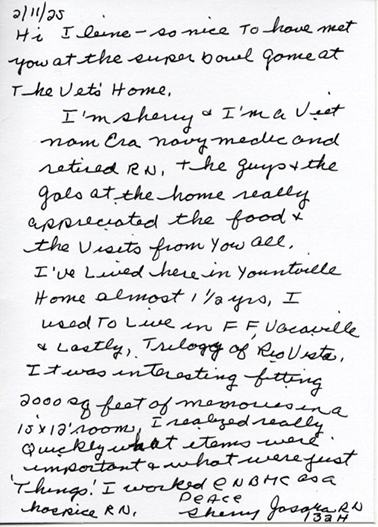 2/11/25
Hi Ileine - so nice to have met
you at the super bowl game at
The Vets Home.
I'm sherry & I'm a Viet
nam Era navy medic and
retired RN. The guys & the
gals at the home really
appreciated the food &
the Visits from you all.
I've Lived here in Yountville
Home almost 1 1/2 yrs, I
used To Live in FF, Vacaville
& Lastly, Trilogy of Rio Vista.
It was interesting fitting
2000 sq feet of memories in a
15'x12' room, I realized really
Quickly what items were
important & what were just
'Things'. I worked @ NBMC as a
hospice RN.
Peace
Sherry RN
132H